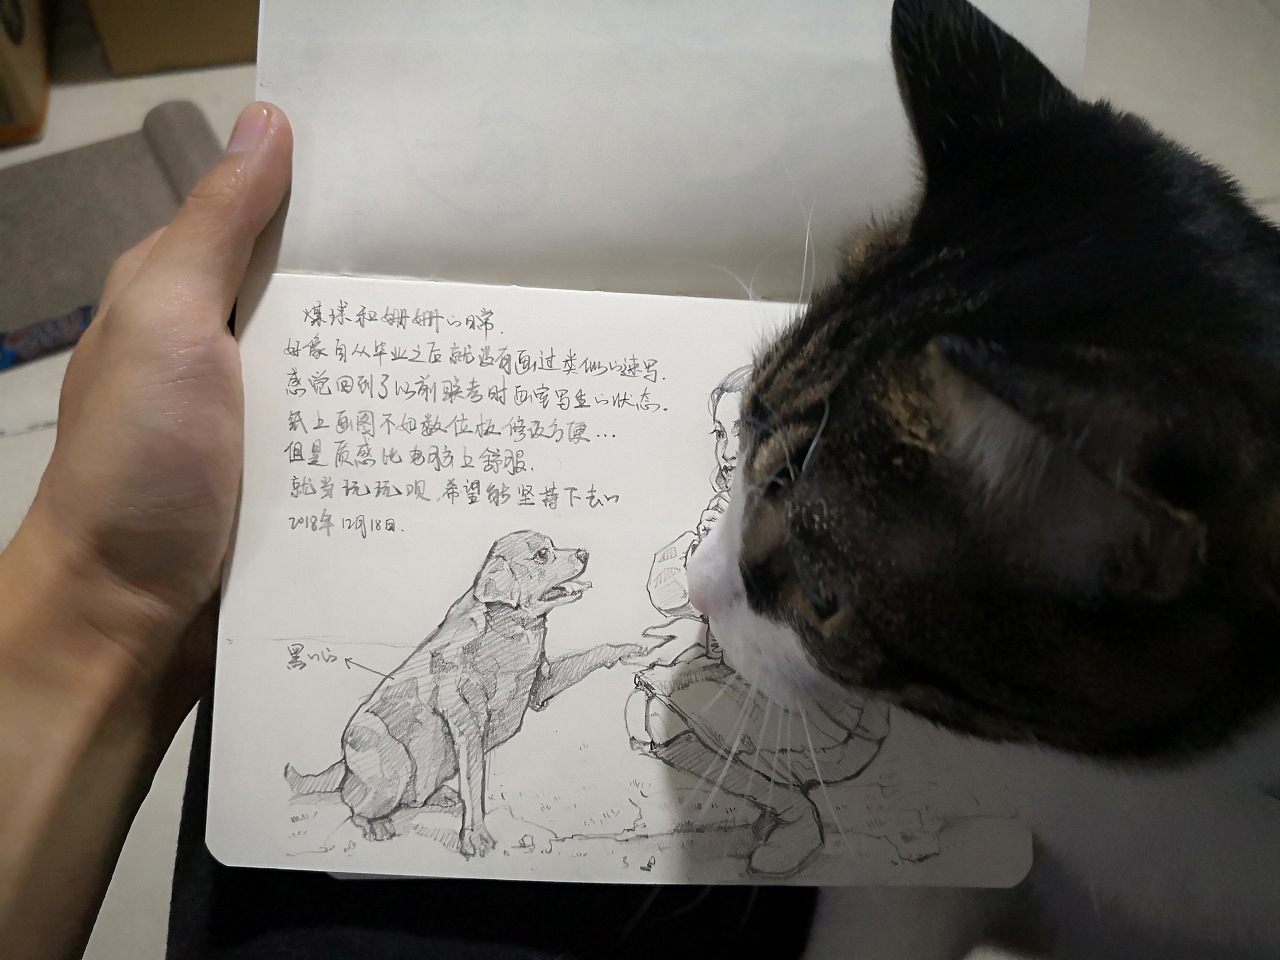 煤球和姗姗的日常.
好像自从毕业之后就没有画过类似的速写.
感觉回到了以前联考时画室写生的状态.
纸上画图不如数位板修改方便...
但是质感比电脑上舒服.
就当玩玩呗 希望能坚持下去
2018年12月18日.
黑的